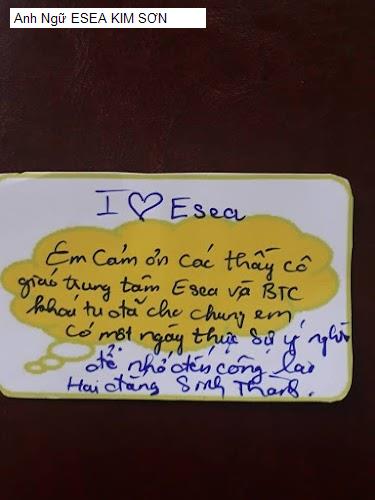 Anh Ngữ ESEA KIM SƠN
I ♡ Esea
Em Cảm ơn các thầy cô
giáo trung tâm Esea và BTC
khoá tu đã cho chúng em
có một ngày thực sự ý nghĩa
để nhớ đến công lao
Hai đấng Sinh Thành.